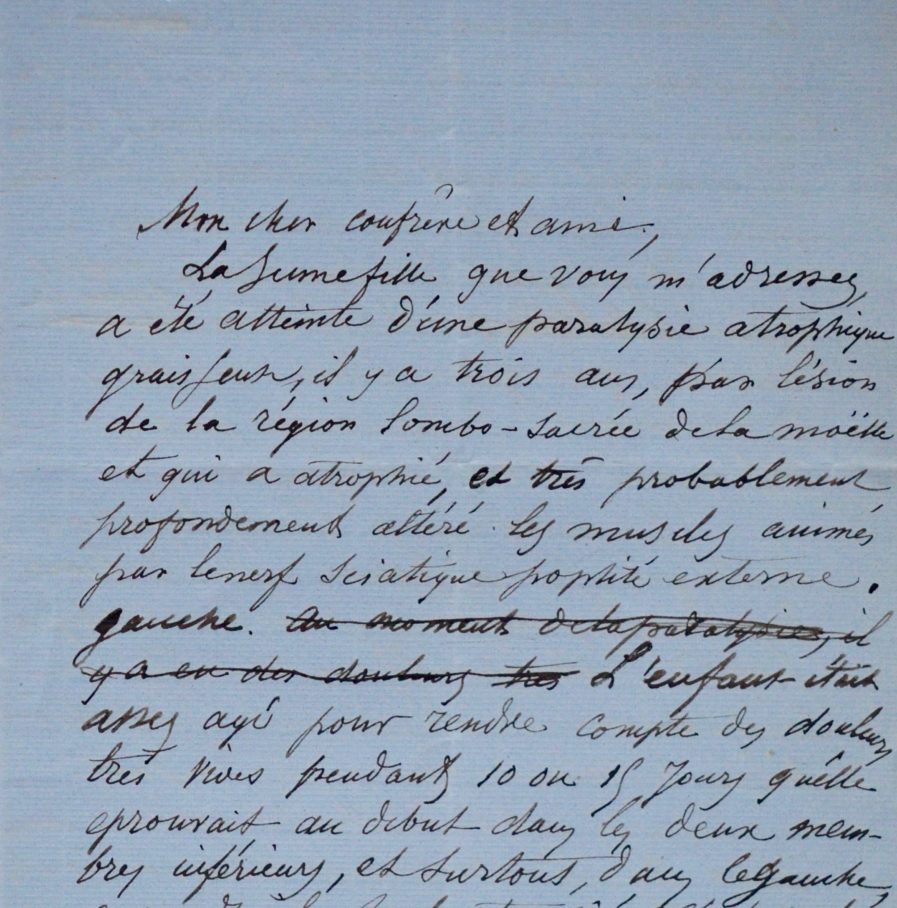 Mon cher confrère et ami,
La Jeune fille que vous m'adressez,
a été atteinte d'une paralysie atrophique
graisseuse, il y a trois ans, par lésion
de la région lombo-sacrée de la moëlle
et qui a atrophié, et très probablement
profondement altéré les muscles animés
par le nerf sciatique poplité externe.
gauche. au moment de la paralysie, il
y a eu des douleurs très L'enfant était
assez agé pour rendre compte des douleurs
très vives pendant 10 ou 15 Jours qu'elle
eprouvait au début dans les deux mem-
bres inférieurs, et surtout, dans le gauche,